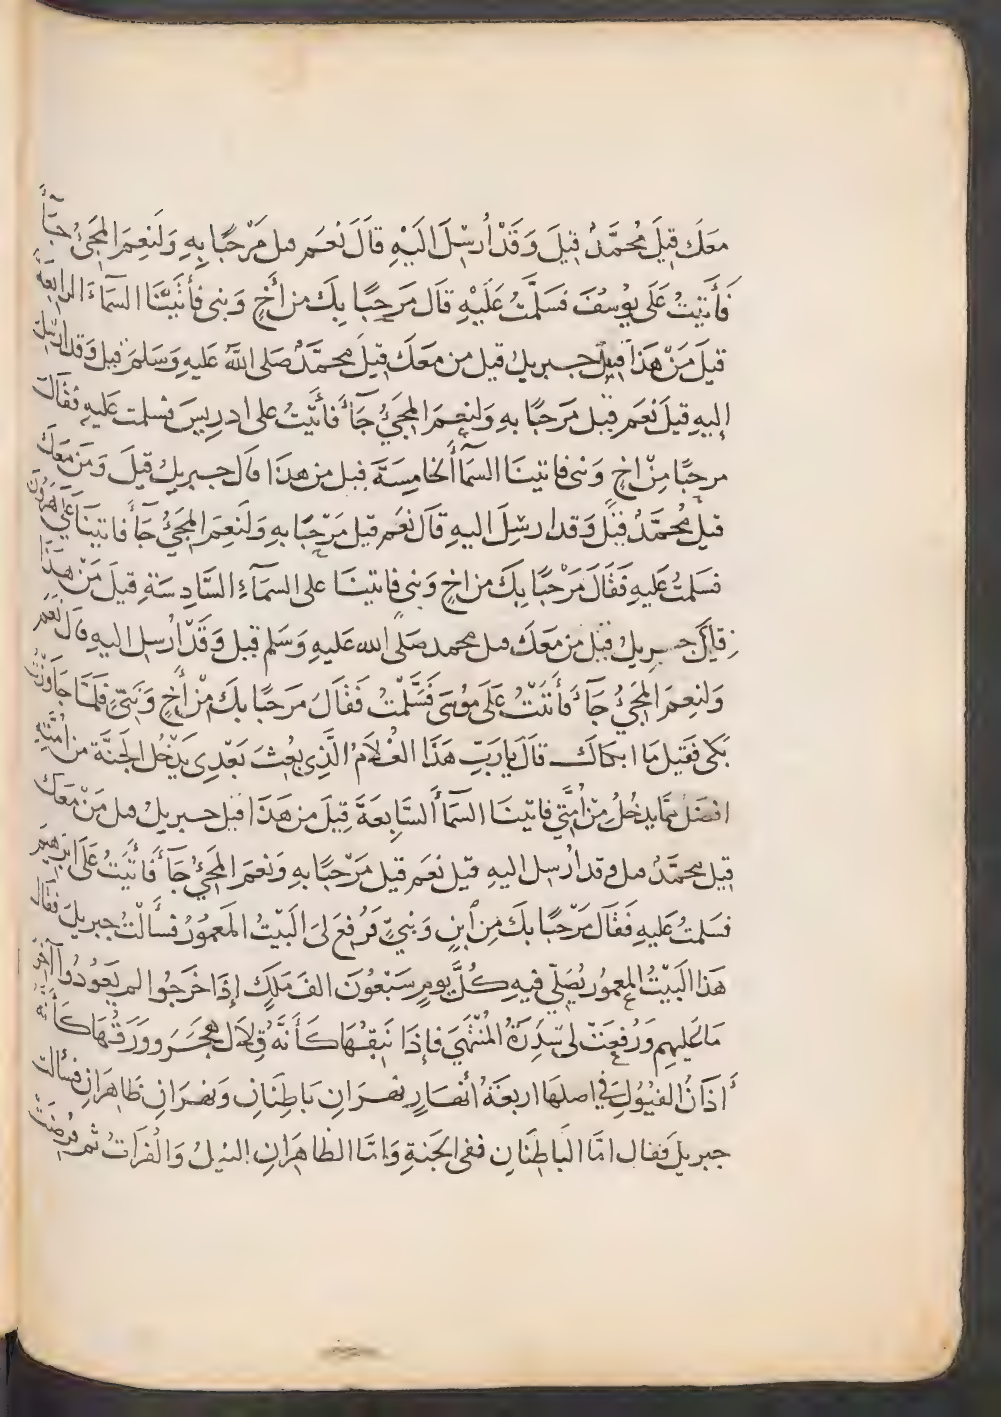 مَعَكَ قِيلَ مُحَمَّدٌ قِيلَ وَقَدْ اُرْسِلَ اِلَيْهِ قَالَ نَعَمْ قيل مَرْحَبًا بِهِ وَلَنِعْمَ المَجِئُ جَآءَ
فَأَتَيْتُ عَلَى يُوسُفَ فَسَلَّمْتُ عَلَيْهِ قَالَ مَرْحَبًا بِكَ مِنْ أَخٍ وَنبى فَأَتَيْنَا السَّمَآءَ الرابِعَةَ
قيلَ مَنْ هَذَا قِيلَ جبريل قيل من مَعَكَ قِيلَ محمَّدٌ صَلى اللهُ عَلَيهِ وَسَلمَ قيل وَقَد ارسِلَ
إِليهِ قيلَ نَعَم قِيل مَرْحَبًا بهِ وَلَنِعمَ المَجِئُ جَآءَ فَأَتَيْتُ على ادريسَ فسلمت عَليهِ فقَالَ
مرحبًا مِنْ اخٍ وَنبى فاتينَا السمآءَ الخامِسَةَ قيل من هذَا قال جبريل قيلَ وَمَن مَعَكَ
قيل مُحمَّدٌ قيْل وَقد ارسِلَ اليهِ قَالَ نعَم قيل مَرْحَبًا بهِ وَلَنعمَ المَجِئُ جَآءَ فاتينَا عَلَى هَرُونَ
فَسَلمتُ عَليهِ فَقَالَ مَرْحَبًا بِكَ من اخٍ وَنبى فاتينَا على السمَآءِ السَّادِسَةِ قيلَ مَنْ هَذَا
قيلَ جبريل قيْل من مَعَكَ قيل محمد صَلَّى الله عَليهِ وَسَلم قيل وَقَدْ ارُسل اليهِ قَالَ نَعَم
وَلنِعمَ المَجِئُ جَآءَ فَأَتَيْتُ عَلَى مُوسَى فَسَلَّمْتُ فَقَالَ مَرحَبًا بكَ مِنْ أَخٍ وَنَبيٍّ فَلَمَّا جَاوَزْتُ
بَكى فَقيل مَا ابكاكَ قالَ يَا رَبِّ هَذَا الغُلَامُ الَّذِى بُعِثَ بَعْدِى يَدْخُل الجَنَّة من امَّتِهِ
افضَل ممَّا يدخُلُ مِنْ امَّتى فاتينَا السمآءَ السَّابِعَةَ قِيلَ من هَذَا قيل جبريل قيل مَنْ مَعَكَ
قيل محمَّدٌ قيل وقد ارُسل اليهِ قيْل نعَم قيل مَرْحَبًا بهِ وَنعمَ المَجِئُ جَآءَ فَأَتَيْتُ عَلَى ابرَهِيم
فسَلمتُ عَليهِ فَقَالَ مَرْحَبًا بكَ مِنَ ابنٍ وَنبيٍّ فَرُفعَ لىَ الَبيْتُ المَعمُورُ فسَأَلْتُ جبريلَ فَقَالَ
هَذا البَيْتُ المعمُورُ يُصَلِّي فيهِ كُلَّ يومٍ سَبْعُونَ الفَ مَلَكٍ إِذَا خَرَجُوا لم يَعُودُوا آخِرَ
مَا عَلَيهِم وَرُفِعَتْ لى سِدْرَةُ الُمنْتَهَى فإِذَا نَبِقُهَا كَأَنَّهُ قِلَالُ هَجَرَ وَوَرَقُهَا كَأَنَّهُ
أذَانُ الفُيُولِ فى اصلهَا اربعَةُ أنهارٍ نهرَانِ بَاطِنَانِ وَنهرَانِ ظاهِرَانِ فسَأَلت
جبريلَ فَقال امَّا الَباطِنَانِ ففى الجَنةِ وَامَّا الظاهِرَانِ النيلُ وَالْفُرَاتُ ثم فُرِضَتْ